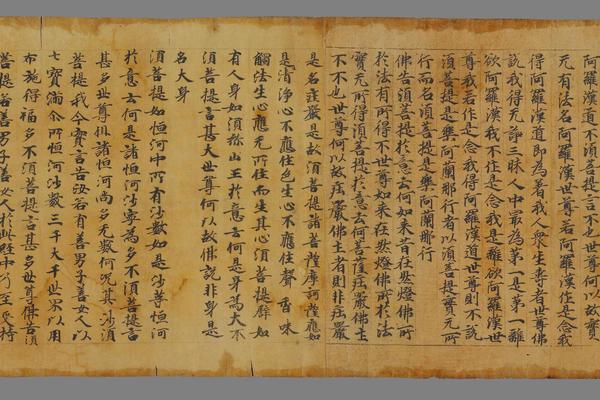 阿羅漢道不須菩提言不也世尊何以故實
无有法名阿羅漢世尊若阿羅漢作是念我
得阿羅漢道即為著我人衆生壽者世尊佛
說我得无諍三昧人中最為第一是第一離
欲阿羅漢我不作是念我是離欲阿羅漢世
尊我若作是念我得阿羅漢道世尊則不說
須菩提是樂阿蘭那行者以須菩提實无所
行而名須菩提是樂阿蘭那行
佛告須菩提於意云何如來昔在然燈佛所
於法有所得不世尊如來在然燈佛所於法
實无所得須菩提於意云何菩薩莊嚴佛土
不不也世尊何以故莊嚴佛土者則非莊嚴
是名莊嚴是故須菩提諸菩薩摩訶薩應如
是清淨心不應住色生心不應住聲香味
觸法生心應无所住而生其心須菩提譬如
有人身如須弥山王於意云何是身為大不
須菩提言甚大世尊何以故佛說非身是
名大身
須菩提如恒河中所有沙數如是沙等恒河
於意云何是諸恒河沙寧為多不須菩提言
甚多世尊但諸恒河尚多无數何況其沙須
菩提我今實言告汝若有善男子善女人以
七寶滿尒所恒河沙數三千大千世界以用
布施得福多不須菩提言甚多世尊佛告須
菩提若善男子善女人於此經中乃至受持